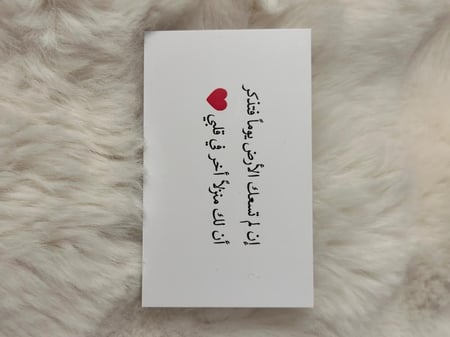 إن لم تسعك الأرض يوماً فتذكر
أن لك منزلاً أخر في قلبي ❤